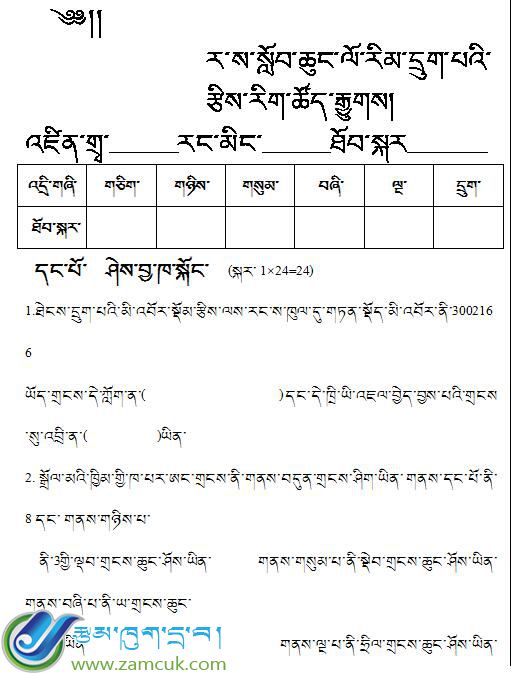 ༄༅།།
ར་ས་སློབ་ཆུང་ལོ་རིམ་དྲུག་པའི་
རྩིས་རིག་ཚོད་རྒྱུགས།
འཛིན་གྲྭ་________རང་མིང་________ཐོབ་སྐར________
འདྲི་གཞི་ གཅིག་ གཉིས་ གསུམ་ བཞི་ ལྔ་ དྲུག་
ཐོབ་སྐར་
དང་པོ་ ཤེས་བྱ་ཁ་སྐོང་ (སྐར་ 1×24=24)
1.ཐེངས་དྲུག་པའི་མི་འབོར་སྡོམ་རྩིས་ལས་རང་ས་ཁུལ་དུ་གཏན་སྡོད་མི་འབོར་ནི་300216
6
ཡོད་གྲངས་དེ་ཀློག་ན་( )དང་དེ་ཁྲི་ཡི་འཇལ་བྱེད་བྱས་པའི་གྲངས
་སུ་འབྲི་ན་( )ཡིན་
2. སྒྲོལ་མའི་ཁྱིམ་གྱི་ཁ་པར་ཨང་གྲངས་ནི་གནས་བདུན་གྲངས་ཤིག་ཡིན་ གནས་དང་པོ་ནི་
8 དང་ གནས་གཉིས་པ་
ནི་3གྱི་ལྡབ་གྲངས་ཆུང་ཤོས་ཡིན་ གནས་གསུམ་པ་ནི་སྡེབ་གྲངས་ཆུང་ཤོས་ཡིན་
གནས་བཞི་པ་ནི་ཡ་གྲངས་ཆུང་
ཡིན་ གནས་ལྔ་པ་ནི་ཧྲིལ་གྲངས་ཆུང་ཤོས་ཡིན་
རྩམ་ཁུག་དྲ་བ།
www.zamcuk.com